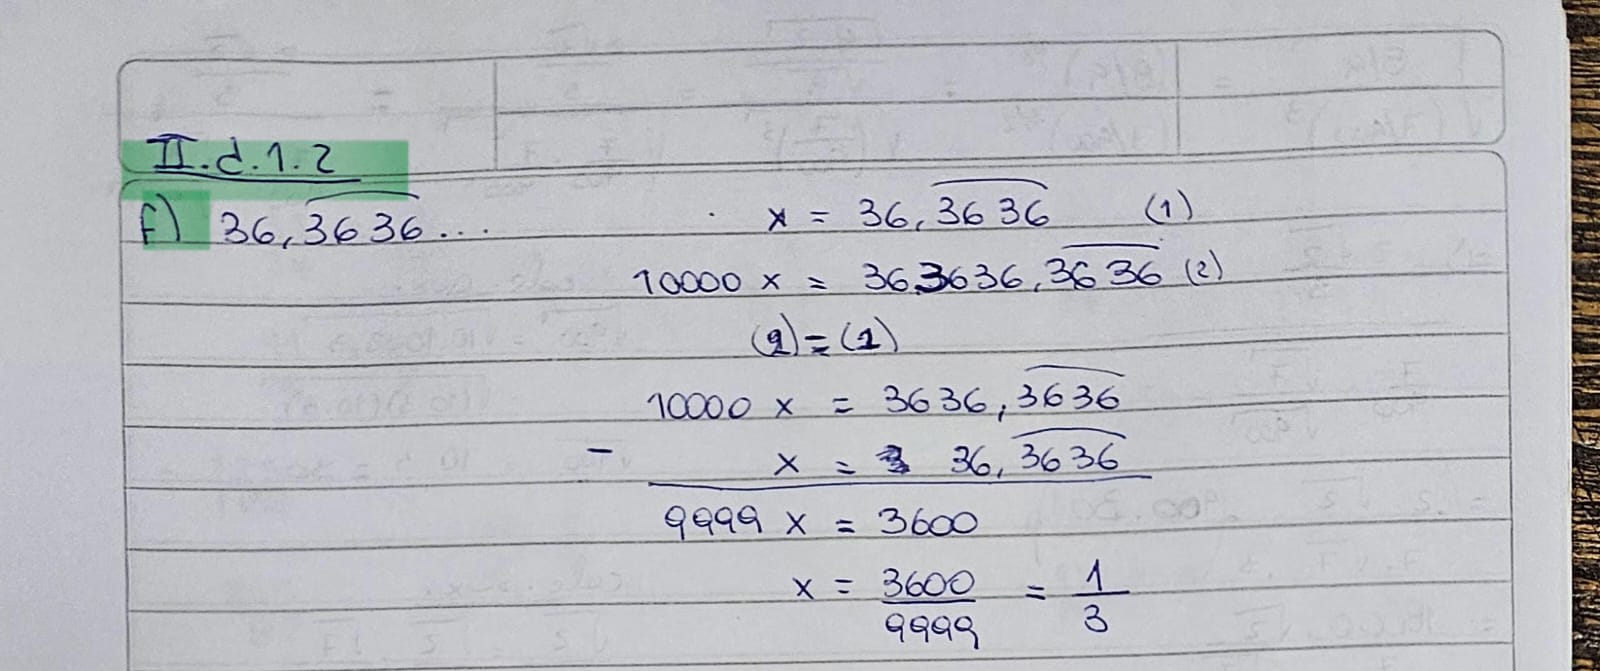 II.d.1.2
f) 36,3636... x = 36,3636 (1)
10000 x = 363636,3636 (2)
(2)=(1)
10000 x = 3636,3636
- x = 36,3636
9999 x = 3600
x = 3600/9999 = 1/3